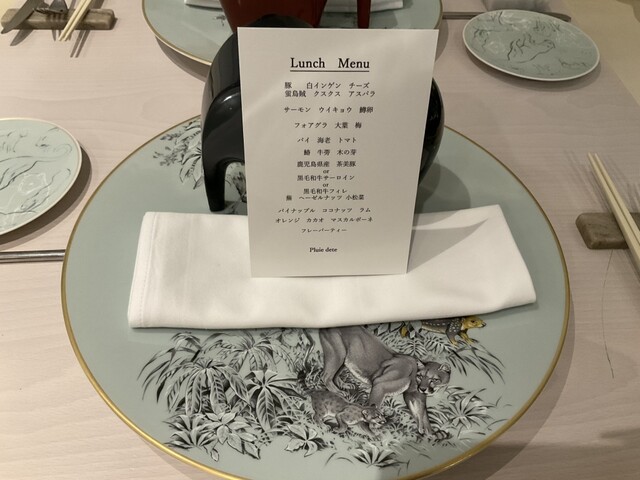 Lunch Menu
豚 白インゲン チーズ
蛍烏賊 クスクス アスパラ
サーモン ウイキョウ 鱒卵
フォアグラ 大葉 梅
パイ 海老 トマト
鰆 牛蒡 木の芽
鹿児島県産 茶美豚
or
黒毛和牛サーロイン
or
黒毛和牛フィレ
ヘーゼルナッツ 小松菜
パイナップル ココナッツ ラム
オレンジ カカオ マスカルポーネ
フレーバーティー
Pluie dete